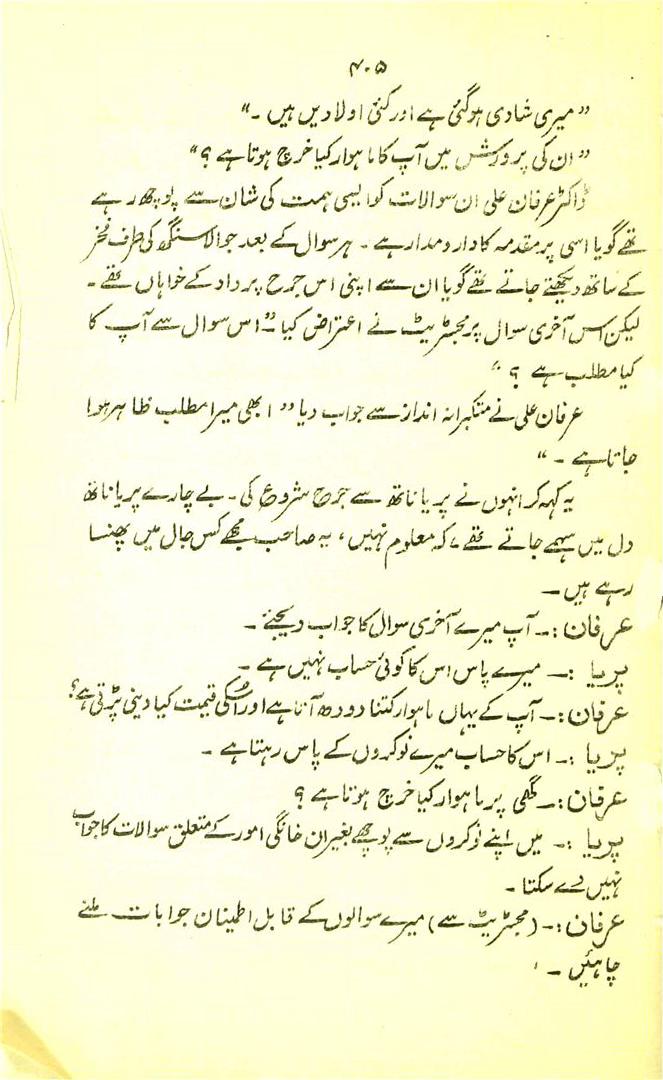 ۴۰۵
” میری شادی ہوگئی ہے اور کئی اولادیں ہیں ۔ “
” ان کی پرورش میں آپ کا ماہوار کیا خرچ ہوتا ہے ؟ “
ڈاکٹر عرفان علی ان سوالات کو ایسی ہمت کی شان سے پوچھ رہے
تھے گویا اسی پر مقدمہ کا دار و مدار ہے ۔ ہر سوال کے بعد جوالا سنگھ کی طرف فخر
کے ساتھ دیکھتے جاتے تھے گویا ان سے اپنی اس جرح پر داد کے خواہاں تھے ۔
لیکن اس آخری سوال پر مجسٹریٹ نے اعتراض کیا ۔ ” اس سوال سے آپ کا
کیا مطلب ہے ؟ “
عرفان علی نے متکبرانہ انداز سے جواب دیا ” ابھی میرا مطلب ظاہر ہوا
جاتا ہے ۔ “
یہ کہہ کر انہوں نے پریا ناتھ سے جرح شروع کی ۔ بے چارے پریا ناتھ
دل میں سہمے جاتے تھے ، کہ معلوم نہیں ، یہ صاحب مجھے کس جال میں پھنسا
رہے ہیں ۔
عرفان :۔ آپ میرے آخری سوال کا جواب دیجئے ۔
پریا :۔ میرے پاس اس کا کوئی حساب نہیں ہے ۔
عرفان :۔ آپ کے یہاں ماہوار کتنا دودھ آتا ہے اور اُسکی قیمت کیا دینی پڑتی ہے ؟
پریا :۔ اس کا حساب میرے نوکروں کے پاس رہتا ہے ۔
عرفان :۔ گھی پر ماہوار کیا خرچ ہوتا ہے ؟
پریا :۔ میں اپنے نوکروں سے پوچھے بغیر ان خانگی امور کے متعلق سوالات کا جواب
نہیں دے سکتا ۔
عرفان :۔ (مجسٹریٹ سے) میرے سوالوں کے قابل اطینان جوابات ملنے
چاہئیں ۔